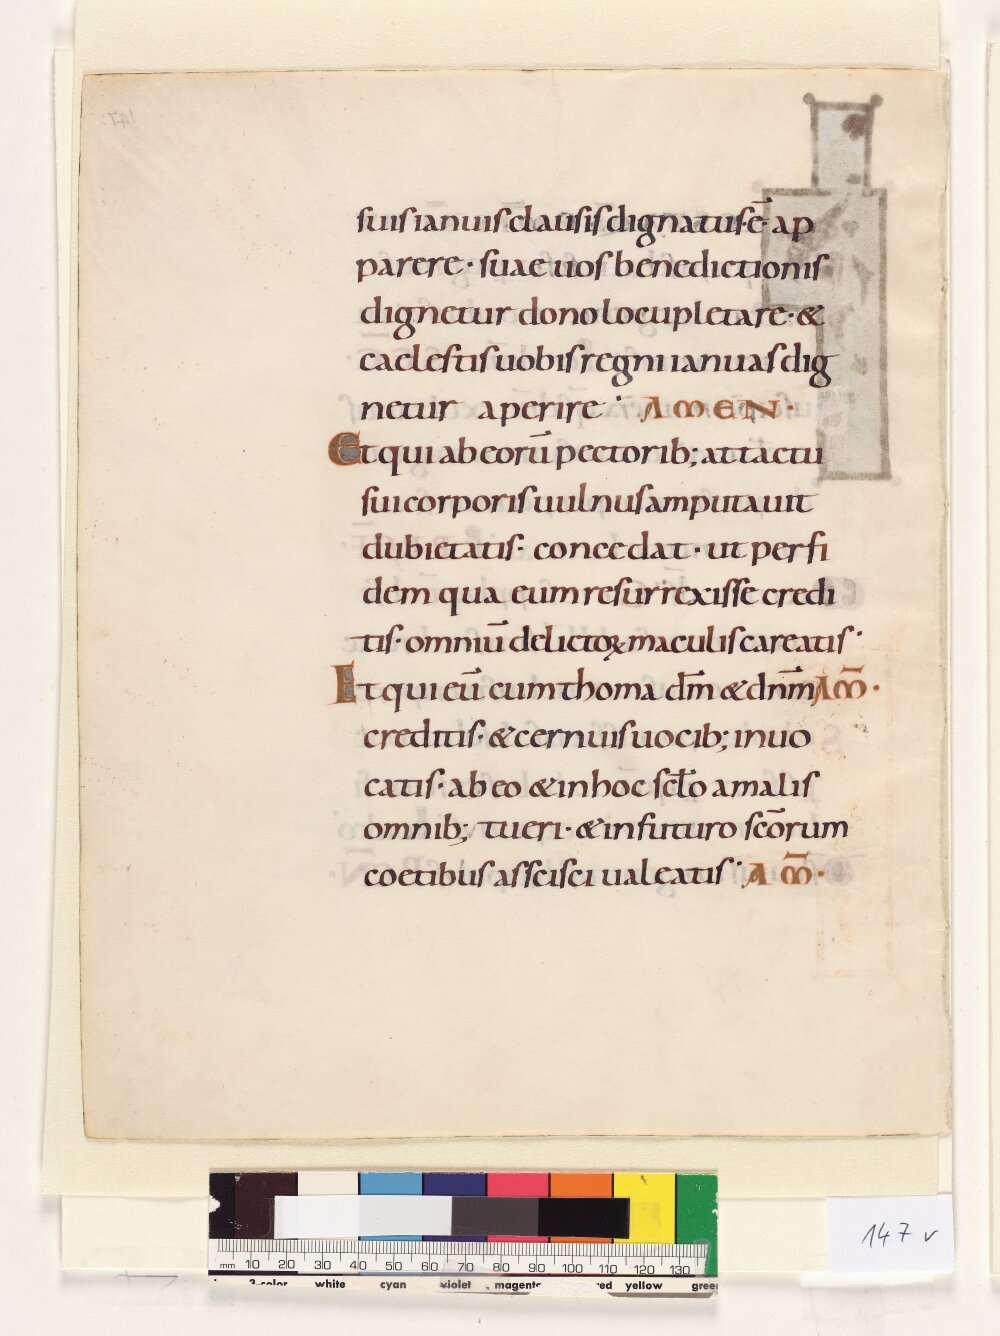 suis ianuis clausis dignatus·ē· ap
parere· suae uos benedictionis
dignetur dono locupletare· &
caelestis uobis regni ianuas dig
netur aperire· AMEN·
Et qui ab eorū pectorib; attactu
sui corporis uulnus amputauit
dubietatis· concedat· ut per fi
dem qua eum resurrexisse credi
tis· omniū delictoꝝ maculis careatis·
Et qui eū cum thoma dm̄ & dnm̄ AM̄·
creditis· & cernuis uocib; inuo
catis· ab eo & in hoc scło a malis
omnib; tueri· & in futuro scōrum
coetibus asscisci ualeatis· AM̄·
147 v
mm 10 20 30 40 50 60 70 80 90 100 110 120 130
3-color white cyan violet magenta red yellow green